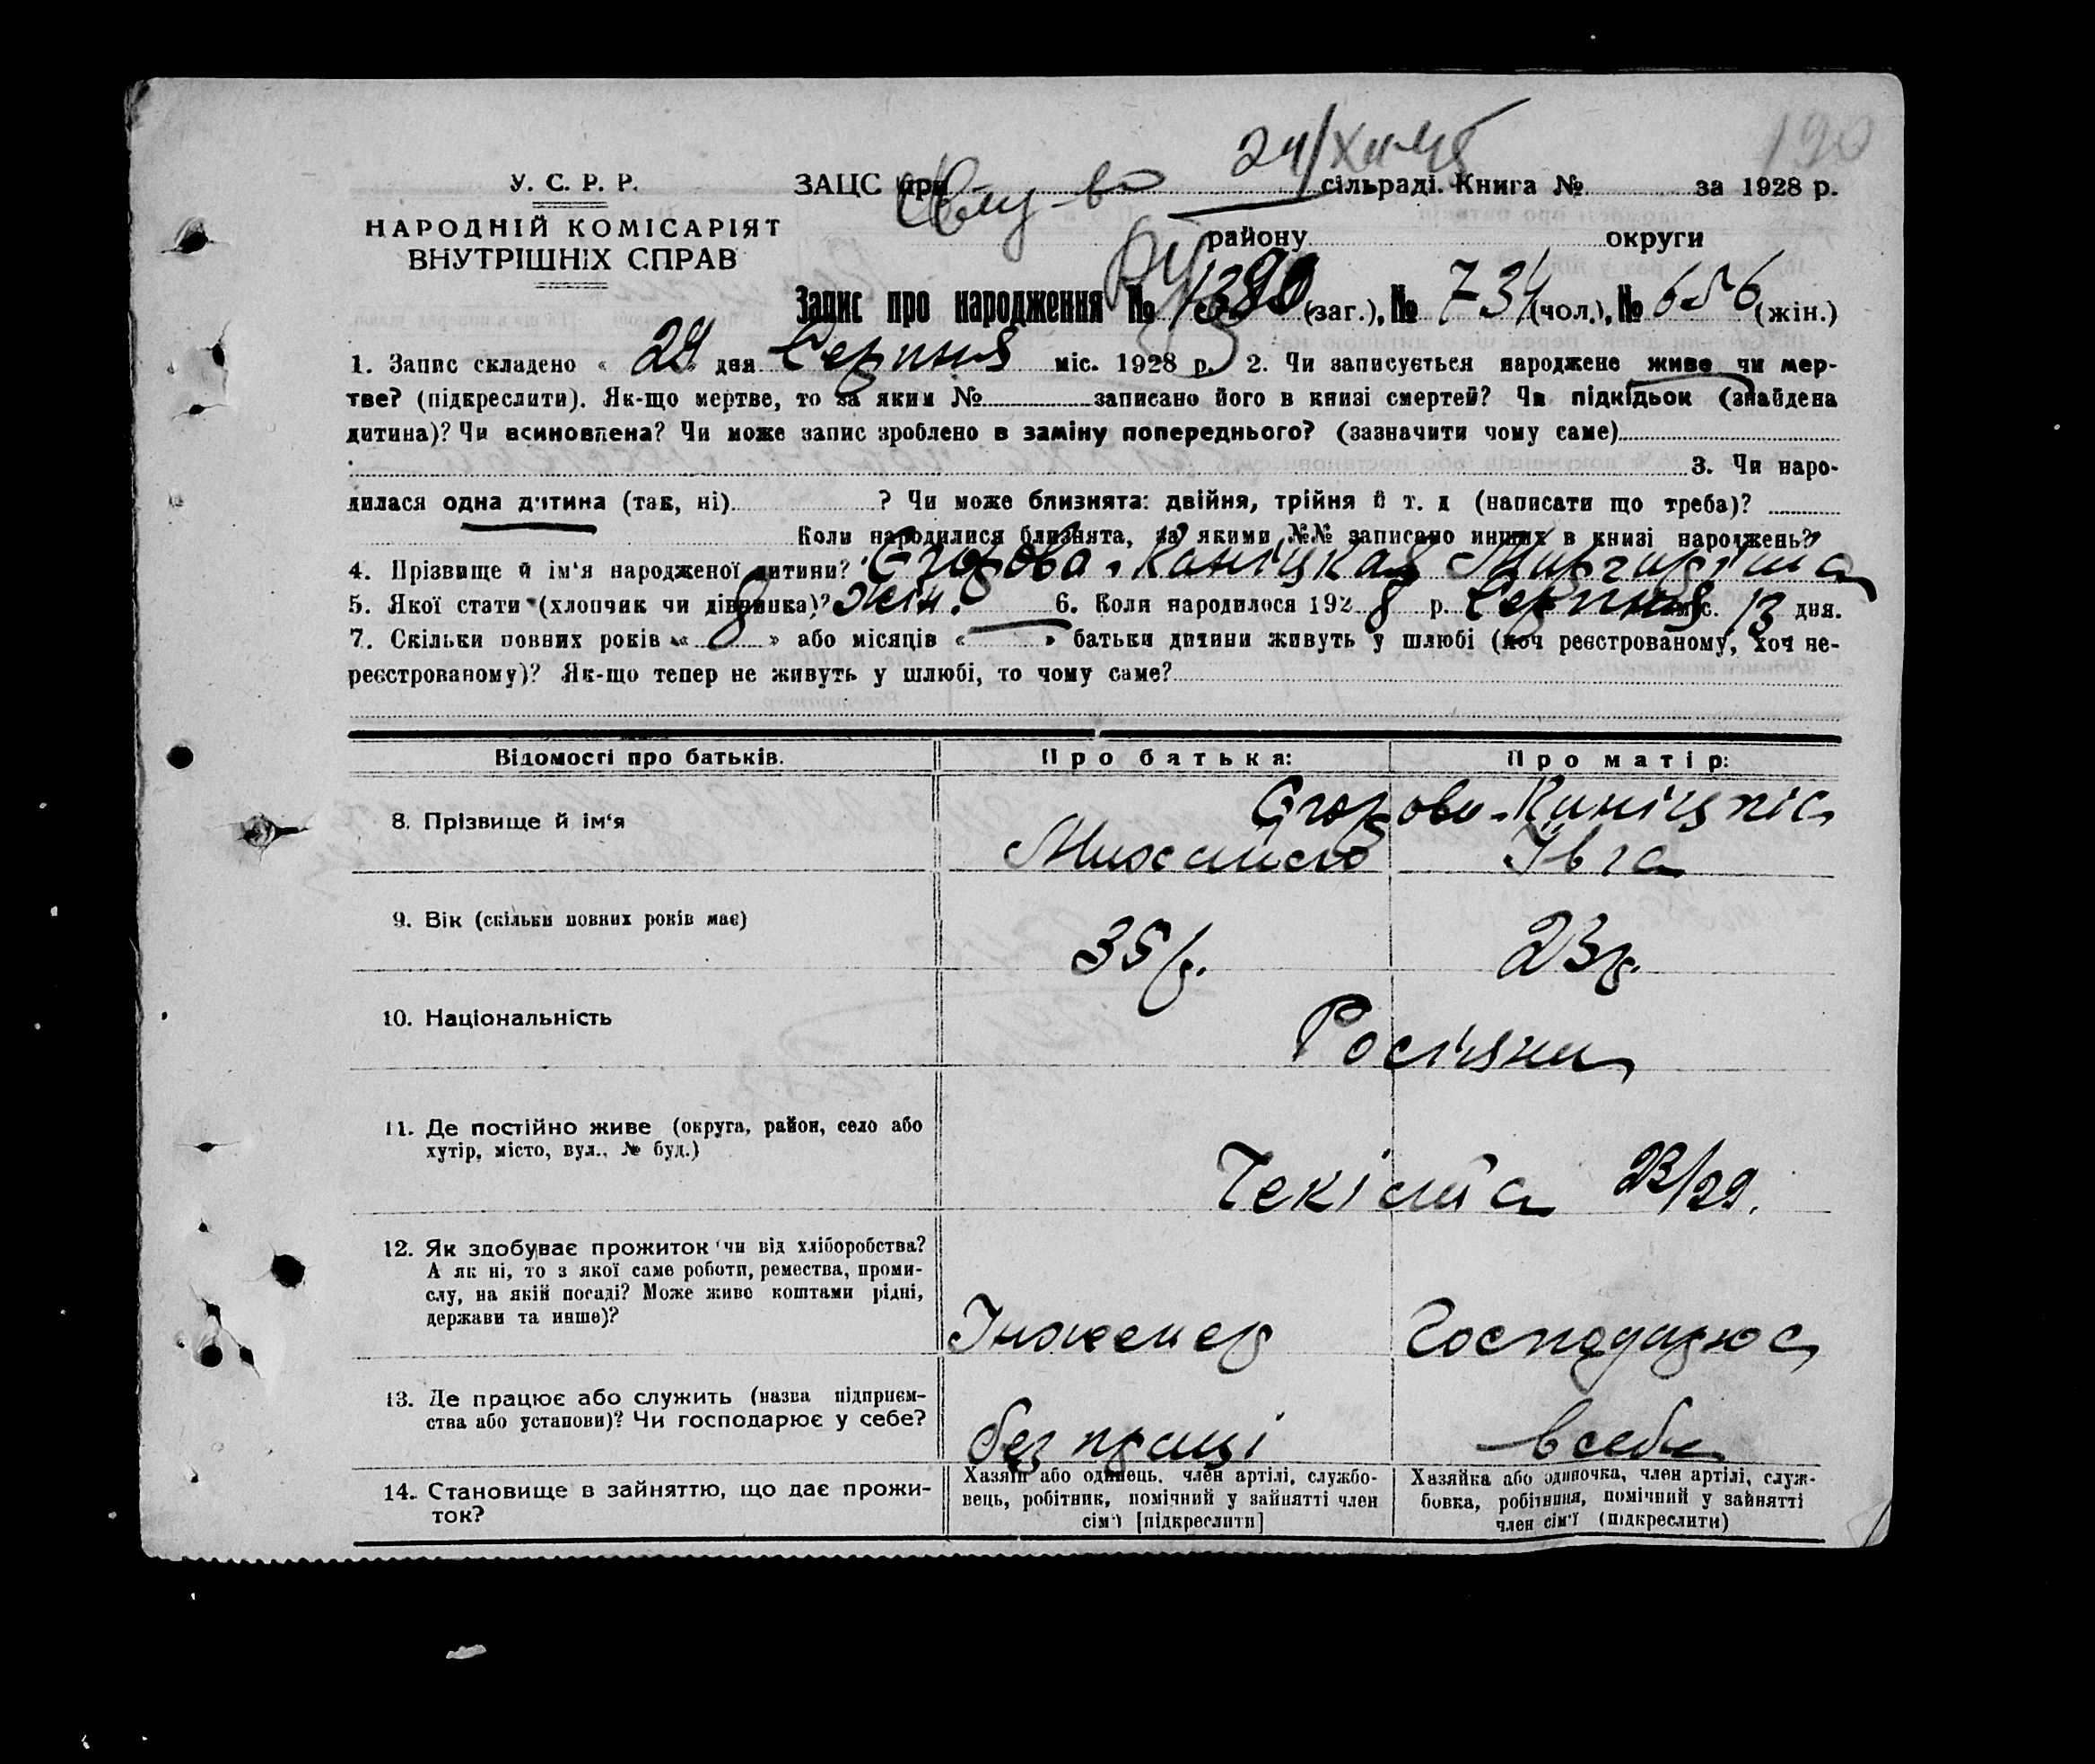 190
24/XII-48
У. С. Р. Р. ЗАЦС при сільраді. Книга № за 1928 р.
НАРОДНІЙ КОМІСАРІЯТ
ВНУТРІШНІХ СПРАВ
району округи
Запис про народження № 1390 (заг.), № 734 (чол.), № 656 (жін.)
1. Запис складено « 29 дня Серпня міс. 1928 р. 2. Чи записується народжене живе чи мер-
тве? (підкреслити). Як-що мертве, то за яким № записано його в книзі смертей? Чи підкідьок (знайдена
дитина)? Чи всиновлена? Чи може запис зроблено в заміну попереднього? (зазначити чому саме)
3. Чи наро-
дилася одна дитина (так, ні) ? Чи може близнята: двійня, трійня й т. д (написати що треба)?
Коли народилися близнята, за якими №№ записано инших в книзі народжень?
4. Прізвище й ім'я народженої дитини? Єгорова-Каніцкая Маргаріта
5. Якої стати (хлопчик чи дівчинка)? жін. 6. Коли народилося 1928 р. Серпня міс. 13 дня.
7. Скільки повних років « 8 » або місяців « — » батьки дитини живуть у шлюбі (хоч реєстрованому, хоч не-
реєстрованому)? Як-що тепер не живуть у шлюбі, то чому саме?
Відомості про батьків. Про батька: Про матір:
Єгорови-Каніцкіє
8. Прізвище й ім'я Михайло Івга
9. Вік (скільки повних років має) 35 р. 23 р.
10. Національність Росіяни
11. Де постійно живе (округа, район, село або
хутір, місто, вул., № буд.)
Чекіста 23/29.
12. Як здобуває прожиток чи від хліборобства?
А як ні, то з якої саме роботи, ремества, проми-
слу, на якій посаді? Може живе коштами рідні,
держави та инше)?
Інженер Господарює
13. Де працює або служить (назва підприєм-
ства або установи)? Чи господарює у себе?
без праці в себе
14. Становище в зайняттю, що дає прожи-
ток?
Хазяїн або одинець, член артілі, службо-
вець, робітник, помічний у зайнятті член
сім'ї [підкреслити]
Хазяйка або одиночка, член артілі, служ-
бовка, робітниця, помічний у зайнятті
член сім'ї (підкреслити)